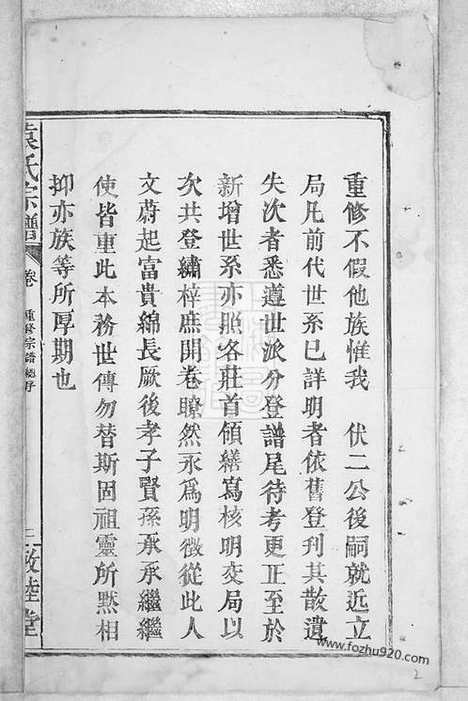 重修不假他族惟我　伏二公後嗣就近立
局凡前代世系已詳明者依舊登刊其散遺
失次者悉遵世派分登譜尾待考更正至於
新增世系亦照各莊首領繕寫核明交局以
次共登繡梓庶開卷瞭然永爲明徵從此人
文蔚起富貴綿長厥後孝子賢孫承承繼繼
使皆重此本務世傳勿替斯固祖靈所黙相
抑亦族等所厚期也
袁氏宗譜
卷
重修宗譜總序
二
敦睦堂
www.fozhu920.com
2